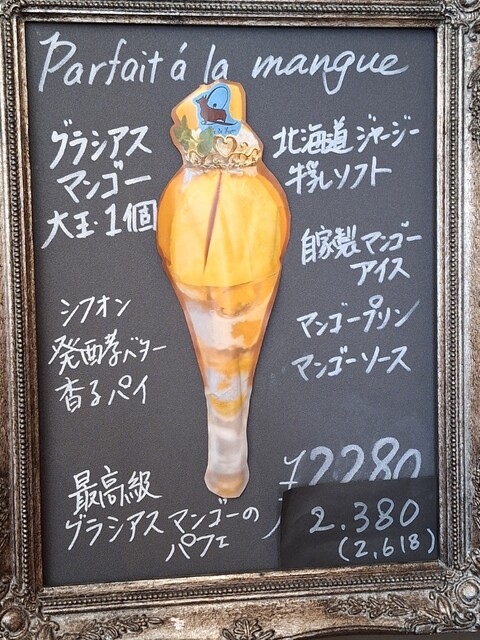 Parfait á la mangue
グラシアス
マンゴー
大玉・1個
シフオン
発酵バター
香るパイ
北海道ジャージー
牛乳ソフト
自家製マンゴー
アイス
マンゴープリン
マンゴーソース
最高級
グラシアスマンゴーの
パフェ
¥2280
2.380
(2,618)